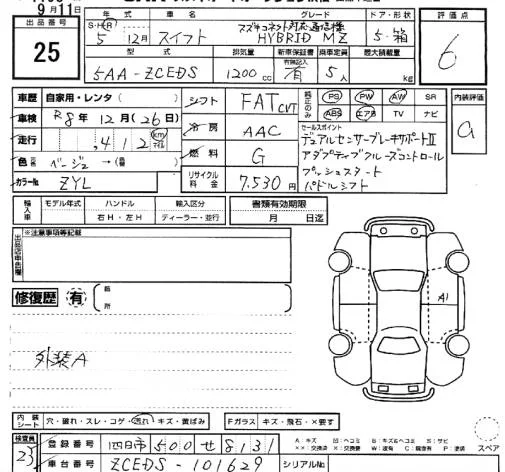 9月11日
出品番号
25
年式 車名 グレード ドア・形状
S・H・R 5年 12月 スイフト HYBRID MZ 5・箱
マヅキコネクト対応通信機
型式 排気量 新車保証書 乗車定員 最大積載量
5AA-ZCEDS 1200cc 有 5人 kg
評価点
6
車歴 自家用・レンタ( )
車検 R8年12月(26日)
走行 ,412 km マイル
色 ベージュ → ( )
カラーNo ZYL
シフト FAT CVT
冷房 AAC
燃料 G
リサイクル料金 7,530円
純正のみ PS PW AW SR
ABS エアB TV ナビ
セールスポイント
デュアルセンサーブレーキサポートⅡ
アダプティブクルーズコントロール
プッシュスタート
パドルシフト
内装評価
a
輸入車 モデル年式 ハンドル 輸入区分
右H・左H ディーラー・並行
書類有効期限
月 日迄
※注意事項等記載
出品店申告欄
修復歴 有
箇所
外装A
A1
内装シート 穴・破れ・スレ・コゲ・汚れ・キズ・黄ばみ
Fガラス キズ・飛石・×要す
検査員 23
登録番号 四日市 500 せ 8131
車台番号 ZCEDS-101629
シリアルNo
A:キズ U:ヘコミ B:キズ&ヘコミ S:サビ
スペア